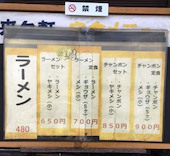 禁煙
ラーメン
480
ラーメン
セット
ラーメン
ヤキメシ(小)
650円
ラーメン
定食
ラーメン
ギョウザ(5ケ)
メシ(小)
700円
チャンポン
セット
チャンポン
ヤキメシ(小)
850円
チャンポン
定食
チャンポン
ギョウザ(5ケ)
メシ(小)
900円